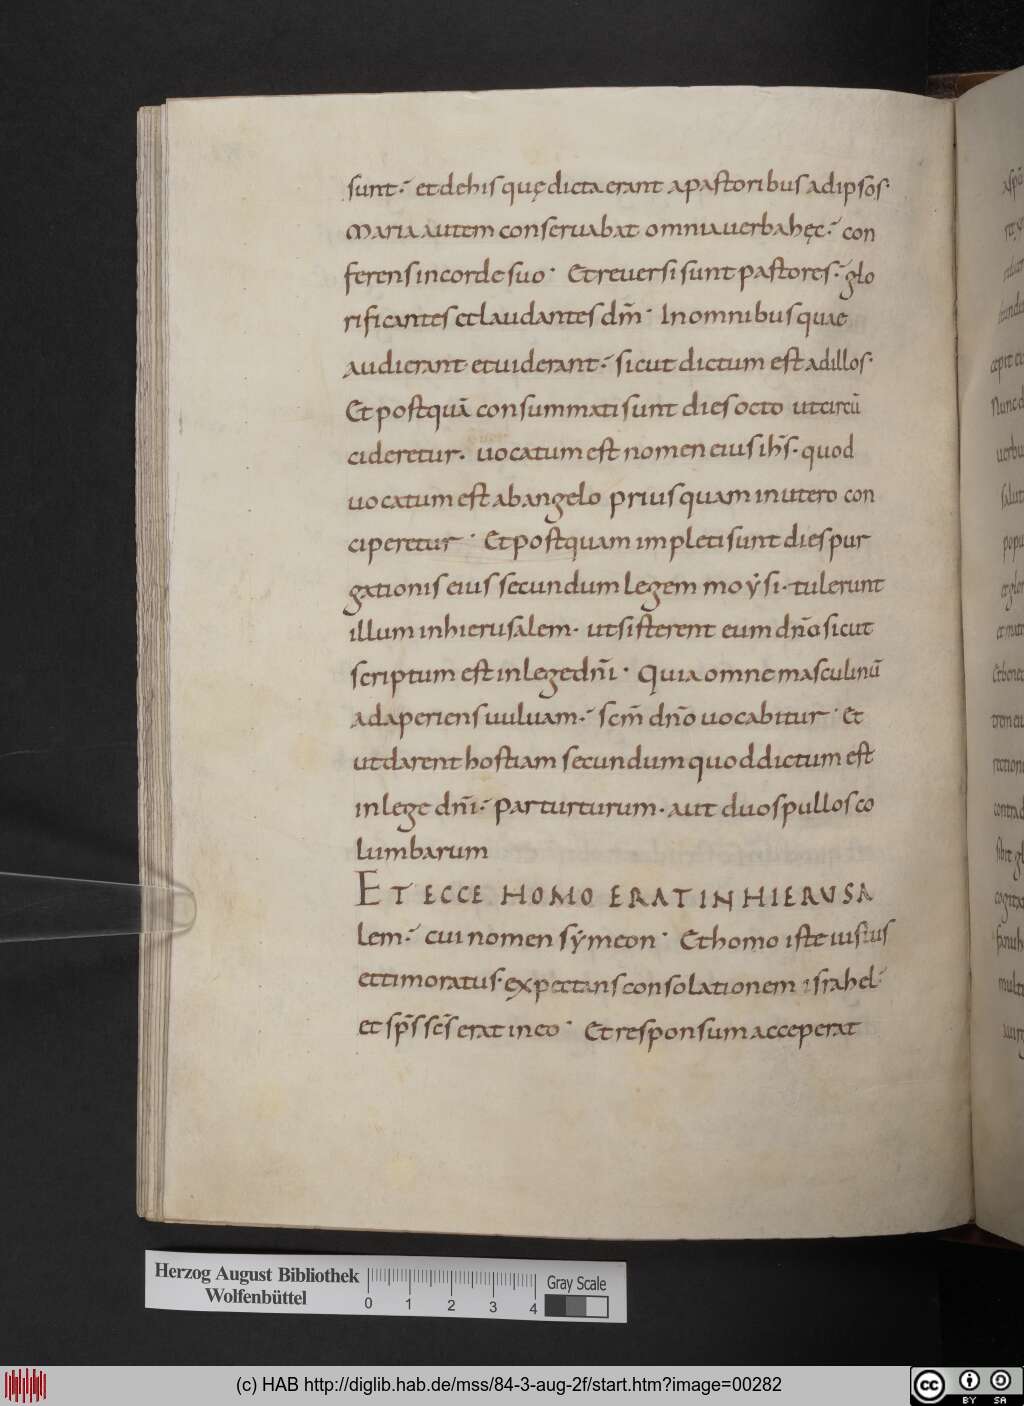 sunt· et dehis quę dicta erant apastoribus adipsos·
Maria autem conseruabat omnia uerba hęc· con
ferens incorde suo· Et reuersi sunt pastores· glo
rificantes et laudantes dm̄· In omnibus quae
audierant et uiderant· sicut dictum est ad illos·
Et postquā consummati sunt dies octo ut circū
cideretur· uocatum est nomen eius ihs̄· quod
uocatum est ab angelo priusquam in utero con
ciperetur· Et postquam impleti sunt dies pur
gationis eius secundum legem moẏsi· tulerunt
illum in hierusalem· ut sisterent eum dn̄o sicut
scriptum est in lege dn̄i· Quia omne masculinū
adaperiens uuluam· scm̄ dn̄o uocabitur· Et
ut darent hostiam secundum quod dictum est
in lege dn̄i· Par turturum· aut duos pullos co
lumbarum
ET ECCE HOMO ERAT IN HIERUSA
lem· cui nomen sẏmeon· Et homo iste iustus
et timoratus· expectans consolationem israhel·
et sp̄s sc̄s erat in eo· Et responsum acceperat
Herzog August Bibliothek
Wolfenbüttel
0 1 2 3 4
Gray Scale
(c) HAB http://diglib.hab.de/mss/84-3-aug-2f/start.htm?image=00282
cc BY SA